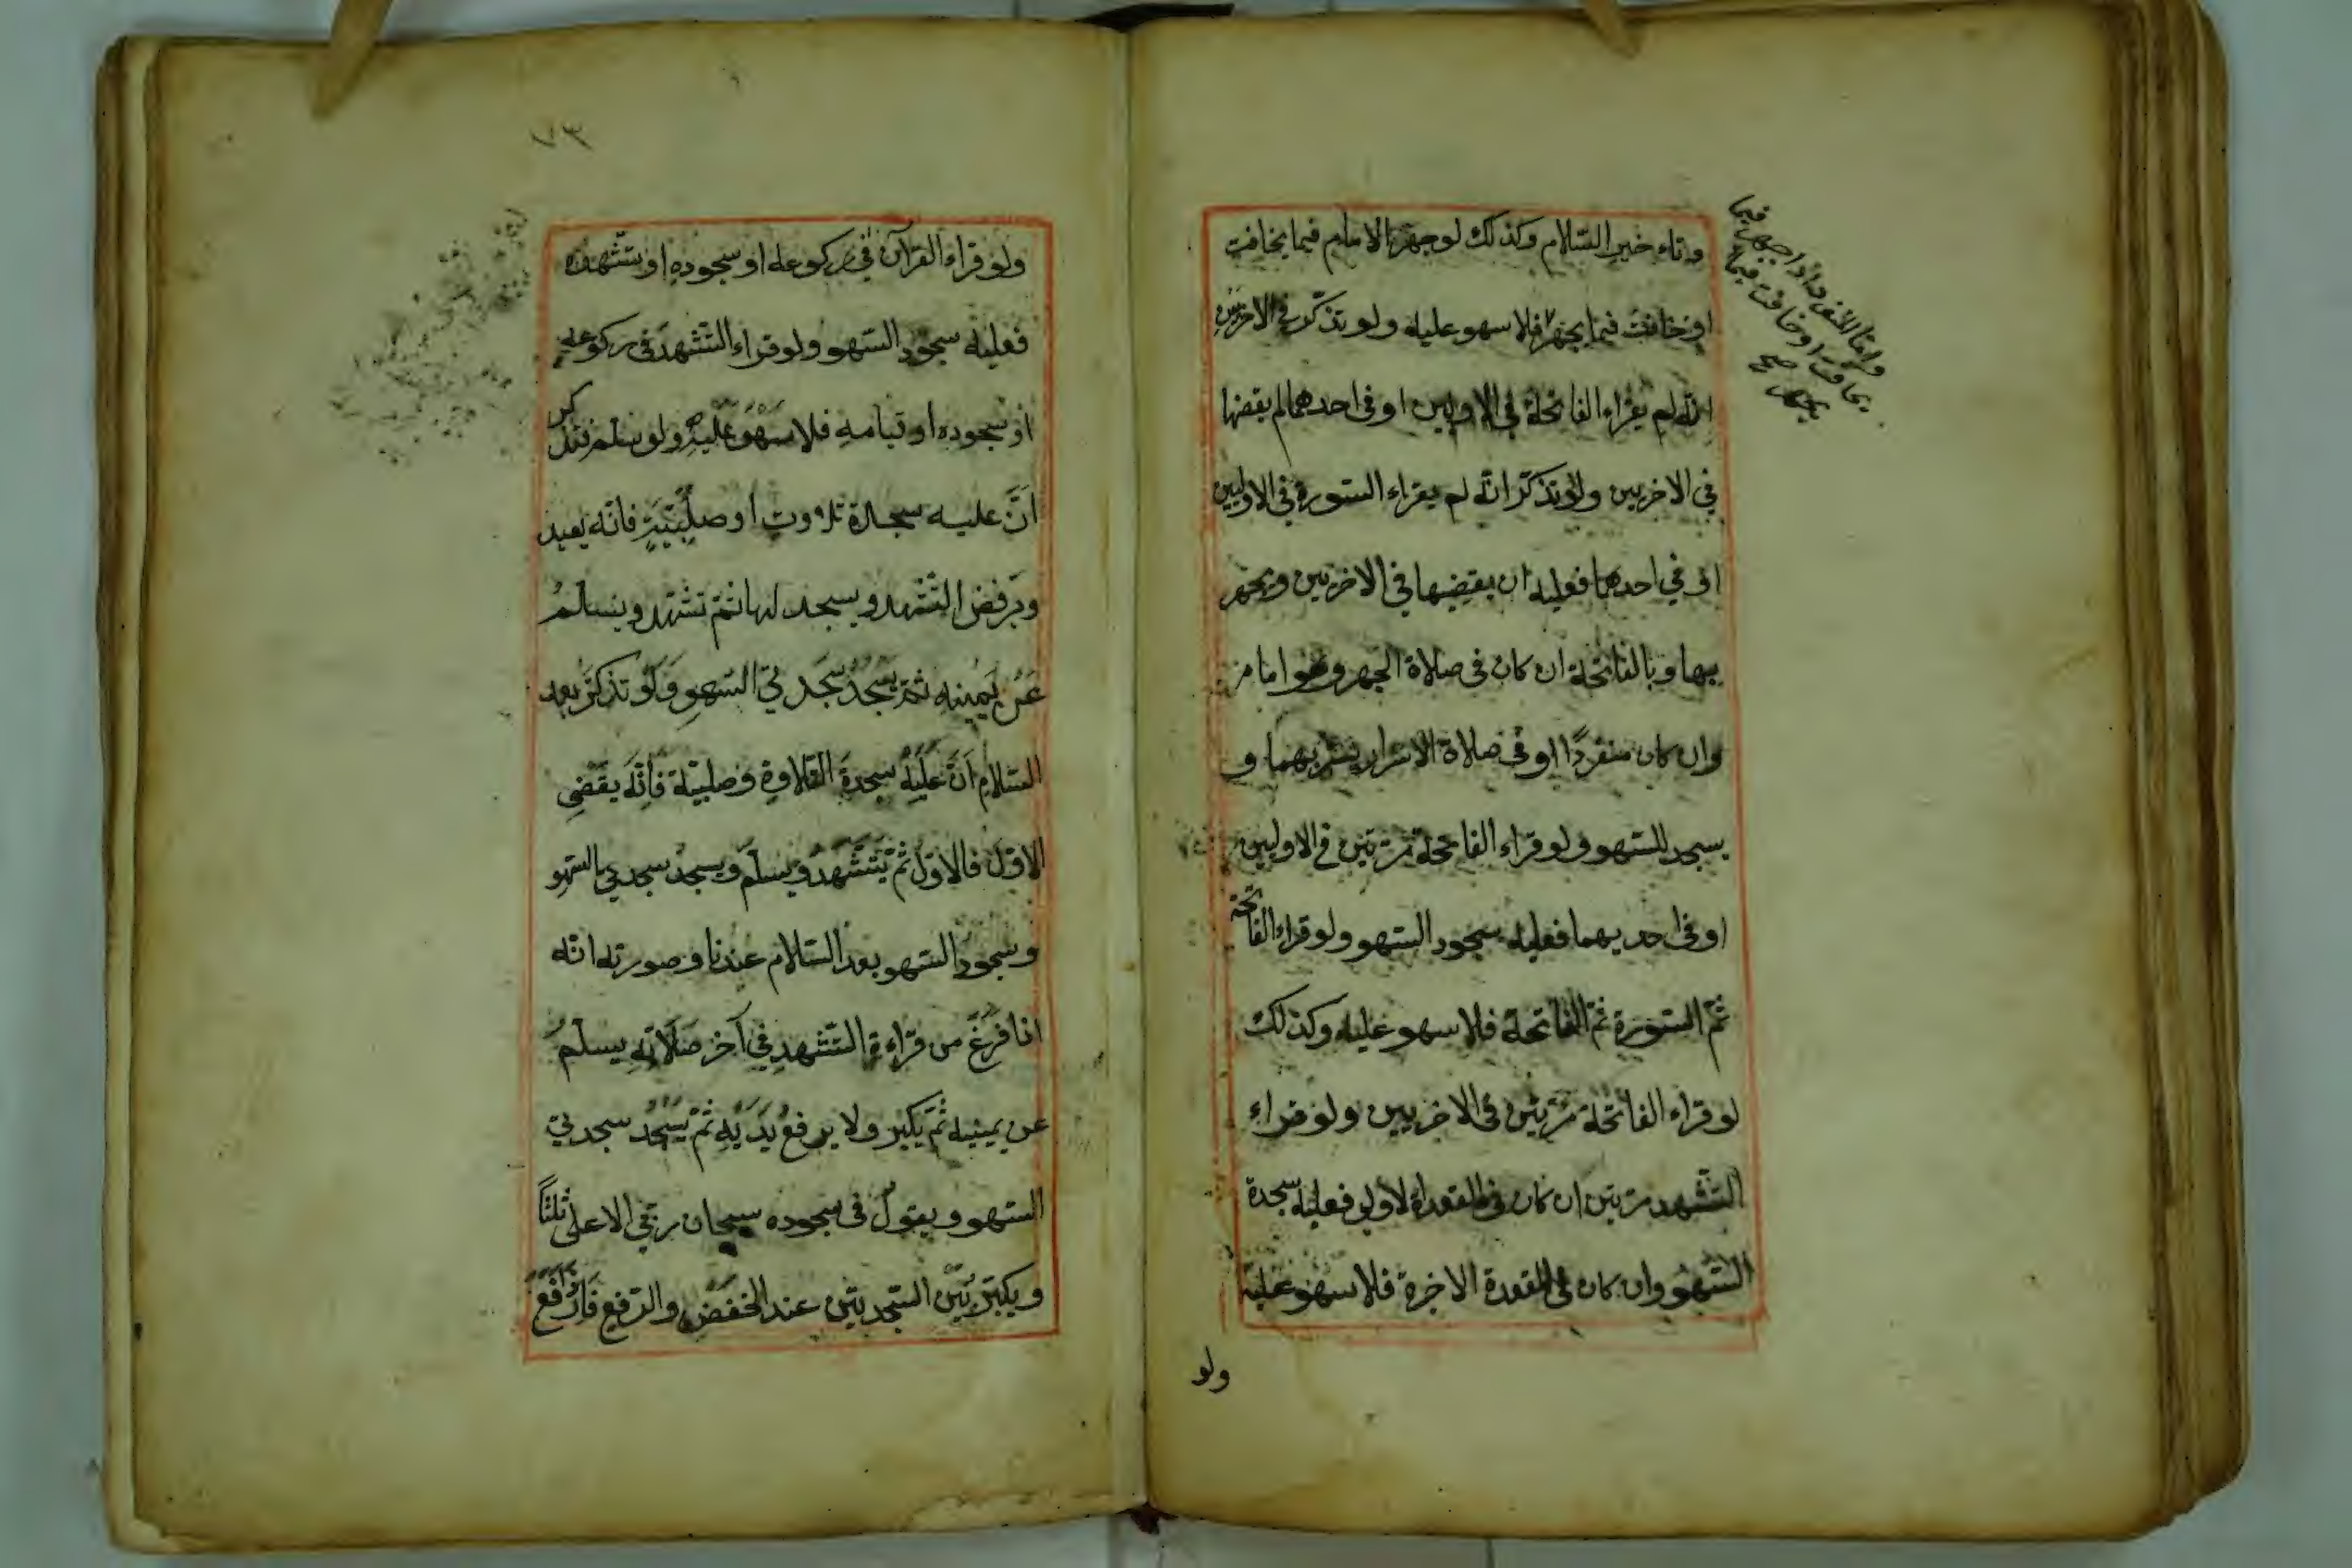 وتاء خير السلام وكذلك لو جهر الامام فيما يخافت
او خافت فيما يجهر فلا سهو عليه ولو تذكر في الاخريين
انه لم يقراء الفاتحة في الاوليين او في احدهما لم يقضها
في الاخريين ولو تذكر انه لم يقراء السورة في الاوليين
او في احدهما فعليه ان يقضيها في الاخريين ويجهر
بها وبالفاتحة ان كان في صلاة الجهر وهو امام
وان كان منفردًا او في صلاة الاسرار يسر بهما و
يسجد للسهو ولو قراء الفاتحة مرتين في الاوليين
او في احديهما فعليه سجود السهو ولو قراء الفاتحة
ثم السورة ثم الفاتحة فلا سهو عليه وكذلك
لو قراء الفاتحة مرتين في الاخريين ولو قراء
التشهد مرتين ان كان في القعدة الاولى فعليه سجدة
السهو وان كان في القعدة الاخرة فلا سهو عليه
ولو
واما المنفرد اذا جهر فيما
يخافت او خافت فيما
يجهر صح
٧٣
ولو قراء القرآن في ركوعه او سجوده او تشهده
فعليه سجود السهو ولو قراء التشهد في ركوعه
او سجوده او قيامه فلا سهو عليه ولو سلم فتذكر
انَّ عليه سجدة تلاوت او صلبية فانه يعيد
ويرفض التشهد ويسجد لها ثم تشهد ويسلم
عن يمينه ثم يسجد سجدتي السهو ولو تذكر بعد
السلام ان عليه سجدة التلاوة وصلبية فانه يقضي
الاول فالاول ثم يتشهد ويسلم ويسجد سجدتي السهو
وسجود السهو بعد السلام عندنا وصورته انه
اذا فرغ من قراءة التشهد في آخر صلاته يسلم
عن يمينه ثم يكبر ولا يرفع يديه ثم يسجد سجدتي
السهو ويقول في سجوده سبحان ربي الاعلى ثلثًا
ويكبر بين السجدتين عند الخفض والرفع فاذا رفع